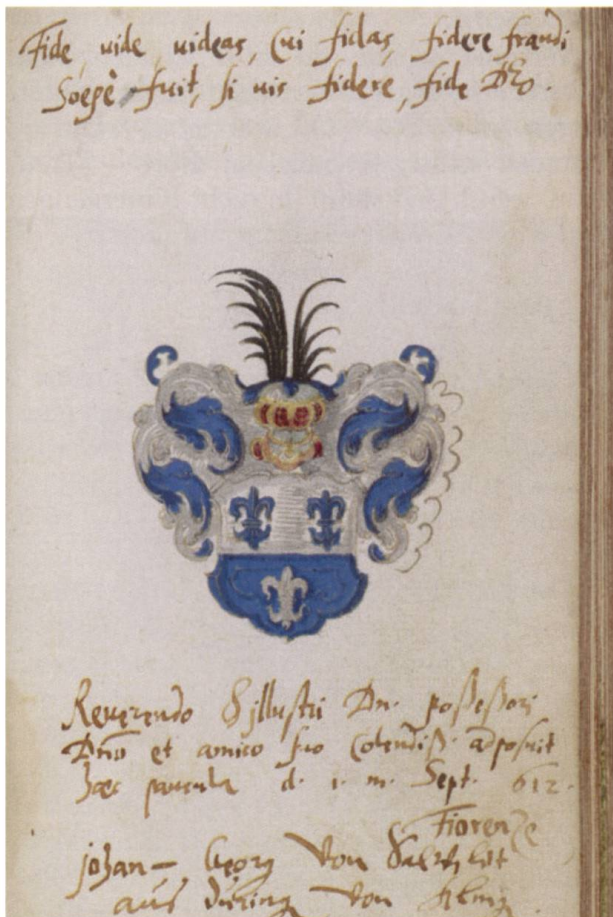 Fide, uide, uideas, Cui fidas, fidere fraudi
Soepè fuit, si uis fidere, fide DEO.
Reuerendo & illustri Dn. possessori
Dno et amico suo Colendiss. adposuit
haec paucula d. 1. m. Sept. 612.
Fiorenze
Johan Georg Von
aus Düring Von